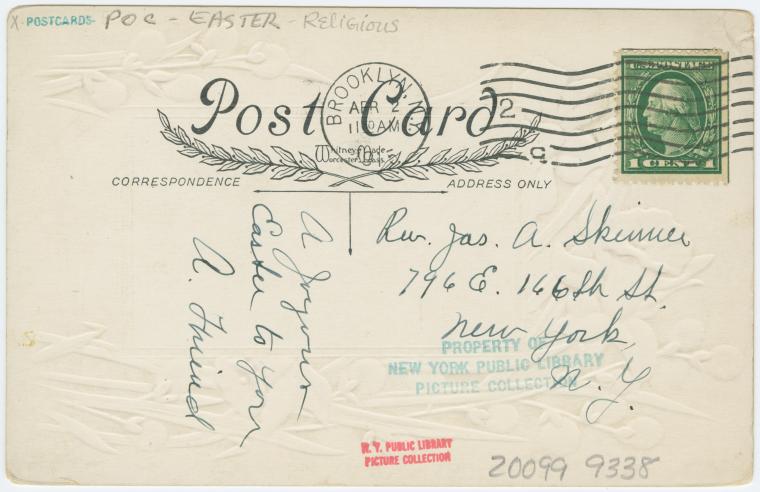 X- POSTCARDS- POC - EASTER - Religious
Post Card
BROOKLYN, N.Y.
APR 2
11 30 AM
2
C
U.S. POSTAGE
1 CENT 1
Whitney Made
Worcester, Mass.
CORRESPONDENCE
ADDRESS ONLY
A Joyous
Easter to You
A. Friend
Rev. Jas. A. Skinner
796 E. 166th St.
New York
N. Y.
PROPERTY OF
NEW YORK PUBLIC LIBRARY
PICTURE COLLECTION
N. Y. PUBLIC LIBRARY
PICTURE COLLECTION
20099 9338